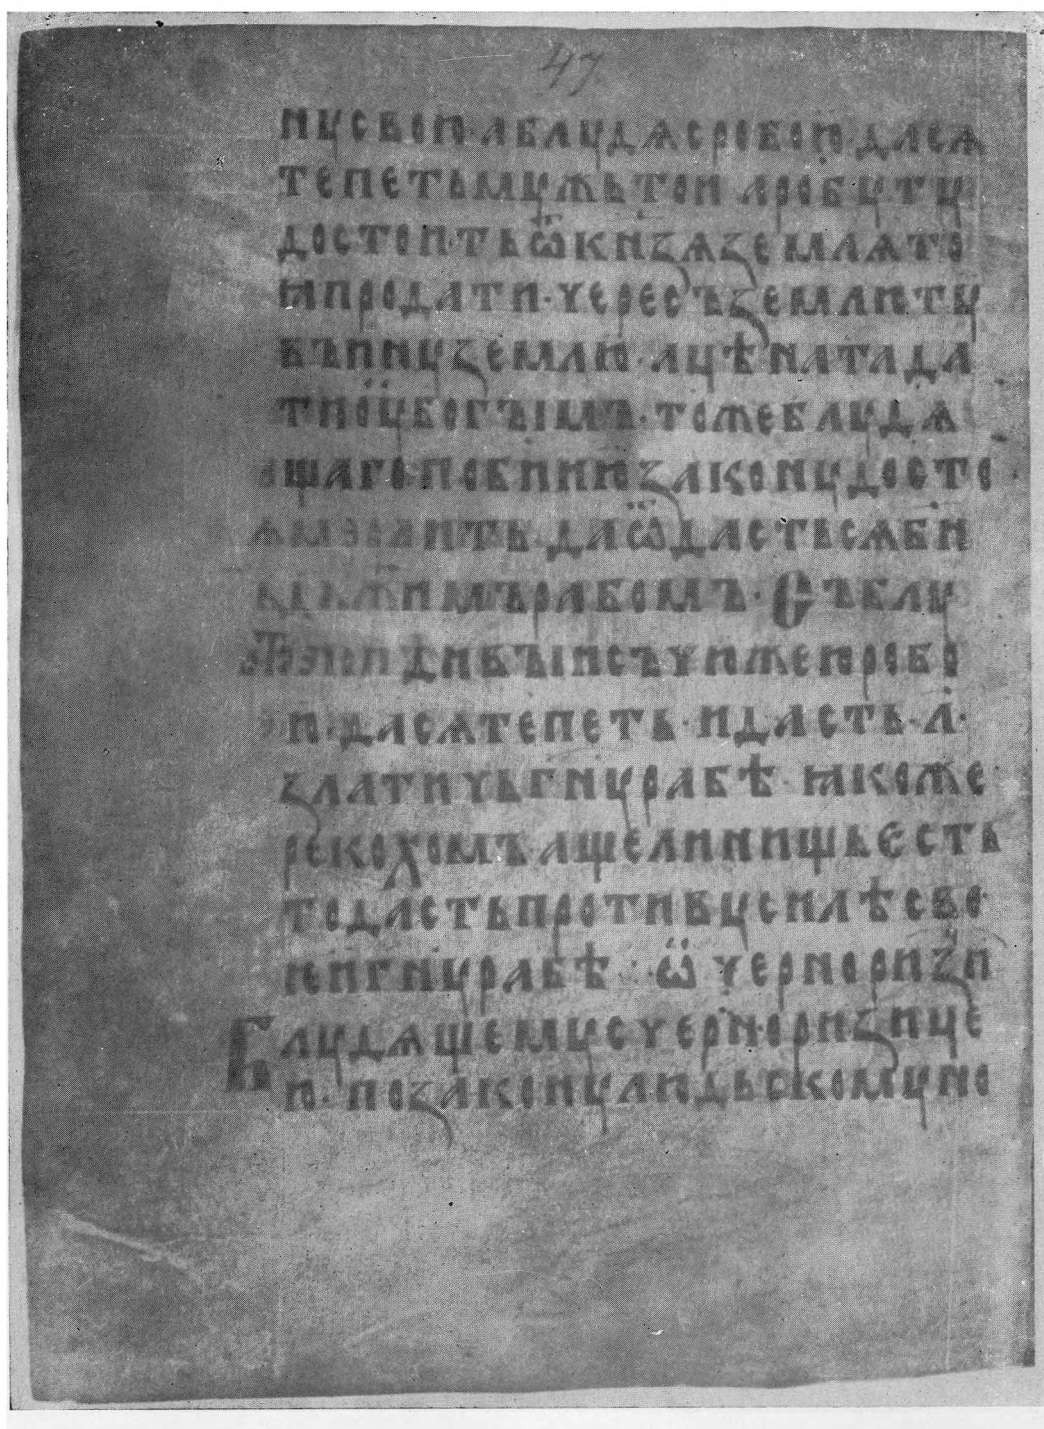 47
нꙋсвою·аблꙋдѧсробою·дасѧ
тепетьмꙋжьтои аробꙋтꙋ
достоитьѿкнѧзѧземлѧто
ꙗпродати·чересъземлютꙋ
въинꙋземлю·ацѣнатада
тиоубогꙑмъ·тожеблꙋдѧ
щагоповинию законꙋдосто
ить даѿдастьсѧби
имърабомъ·Съблꙋ
дивꙑисъчижеюробо
и·дасѧтепеть·идасть·л҃·
златичьгнꙋрабѣ·ꙗкоже
рекохомъ·ащелинищьѥсть
тодастьпротивꙋсилѣсво·
ѥигнꙋрабѣ ѿ черноризи
Блꙋдѧщемꙋсчерноризице
ю·позаконꙋлюдьскомꙋно